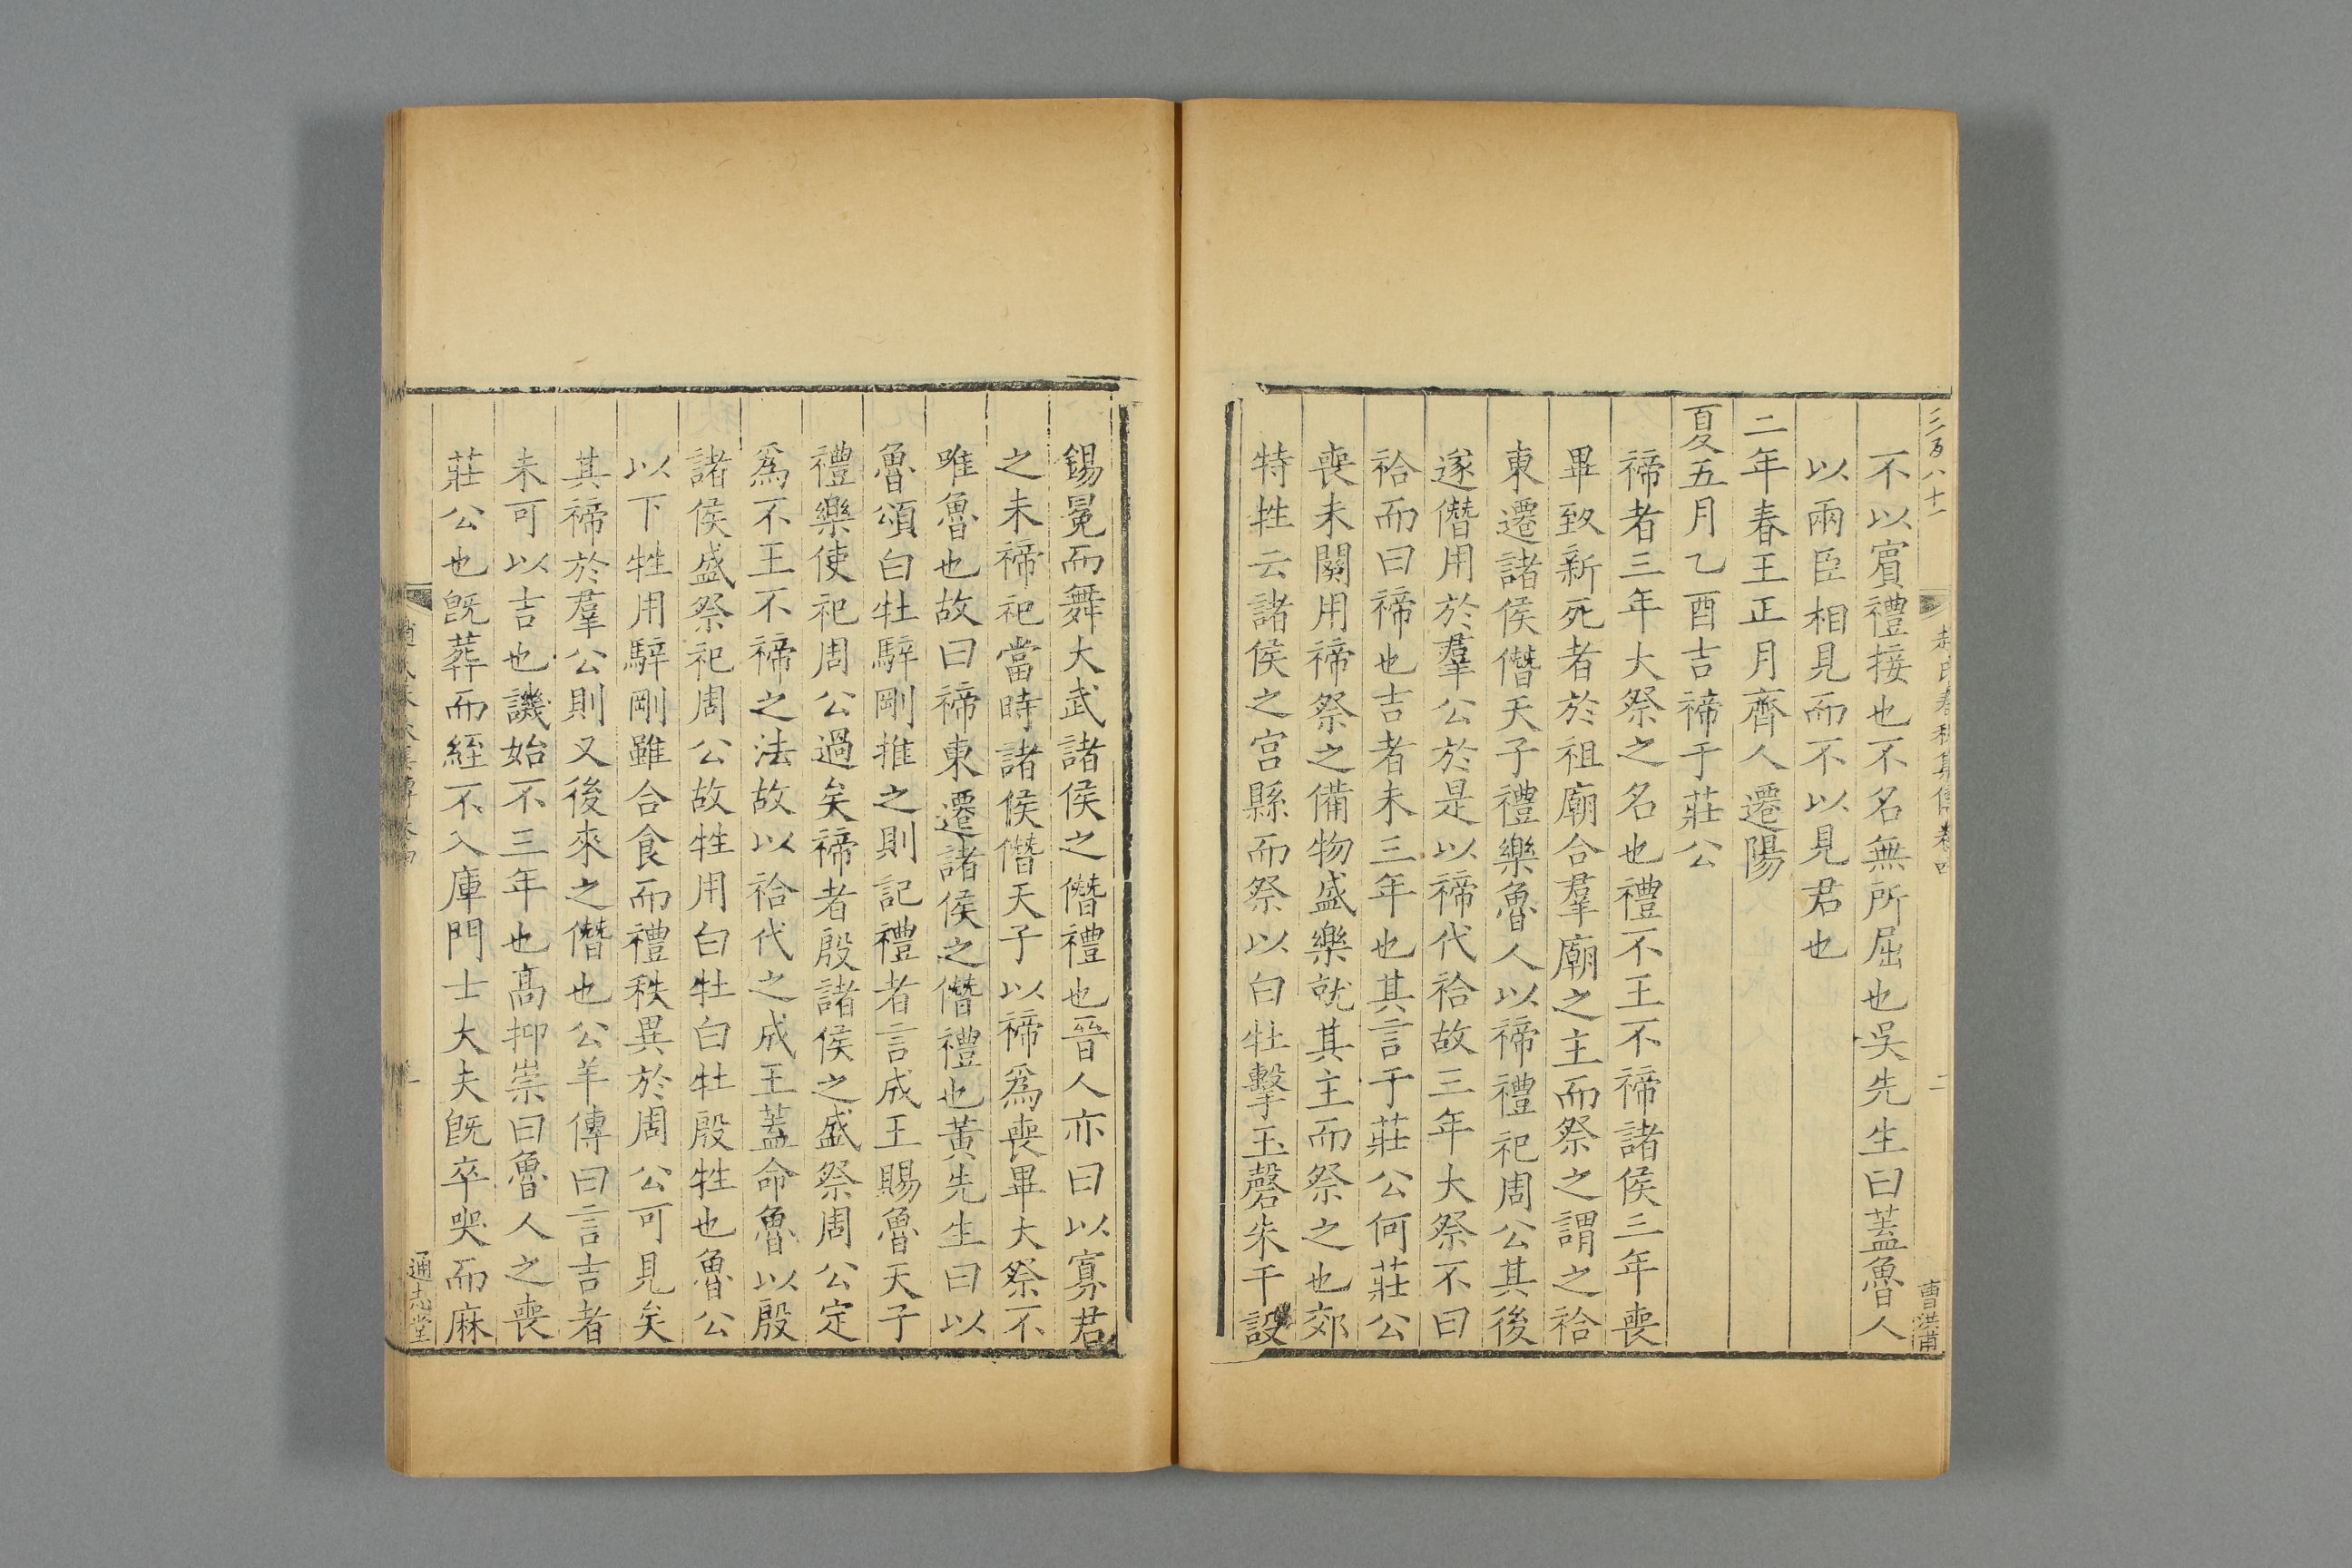 三百八十一
趙氏春秋集傳卷四
二
曹洪甫
不以賔禮接也不名無所屈也吳先生曰蓋魯人
以兩臣相見而不以見君也
二年春王正月齊人遷陽
夏五月乙酉吉禘于莊公
禘者三年大祭之名也禮不王不禘諸侯三年喪
畢致新死者於祖廟合羣廟之主而祭之謂之祫
東遷諸侯僭天子禮樂魯人以禘禮祀周公其後
遂僭用於羣公於是以禘代祫故三年大祭不曰
祫而曰禘也吉者未三年也其言于莊公何莊公
喪未闋用禘祭之備物盛樂就其主而祭之也郊
特牲云諸侯之宫縣而祭以白牡擊玉磬朱干設
錫冕而舞大武諸侯之僭禮也晉人亦曰以寡君
之未禘祀當時諸侯僭天子以禘爲喪畢大祭不
唯魯也故曰禘東遷諸侯之僭禮也黃先生曰以
魯頌白牡騂剛推之則記禮者言成王賜魯天子
禮樂使祀周公過矣禘者殷諸侯之盛祭周公定
爲不王不禘之法故以祫代之成王蓋命魯以殷
諸侯盛祭祀周公故牲用白牡白牡殷牲也魯公
以下牲用騂剛雖合食而禮秩異於周公可見矣
其禘於羣公則又後來之僭也公羊傳曰言吉者
未可以吉也譏始不三年也髙抑崇曰魯人之喪
莊公也旣葬而絰不入庫門士大夫旣卒哭而麻
通志堂